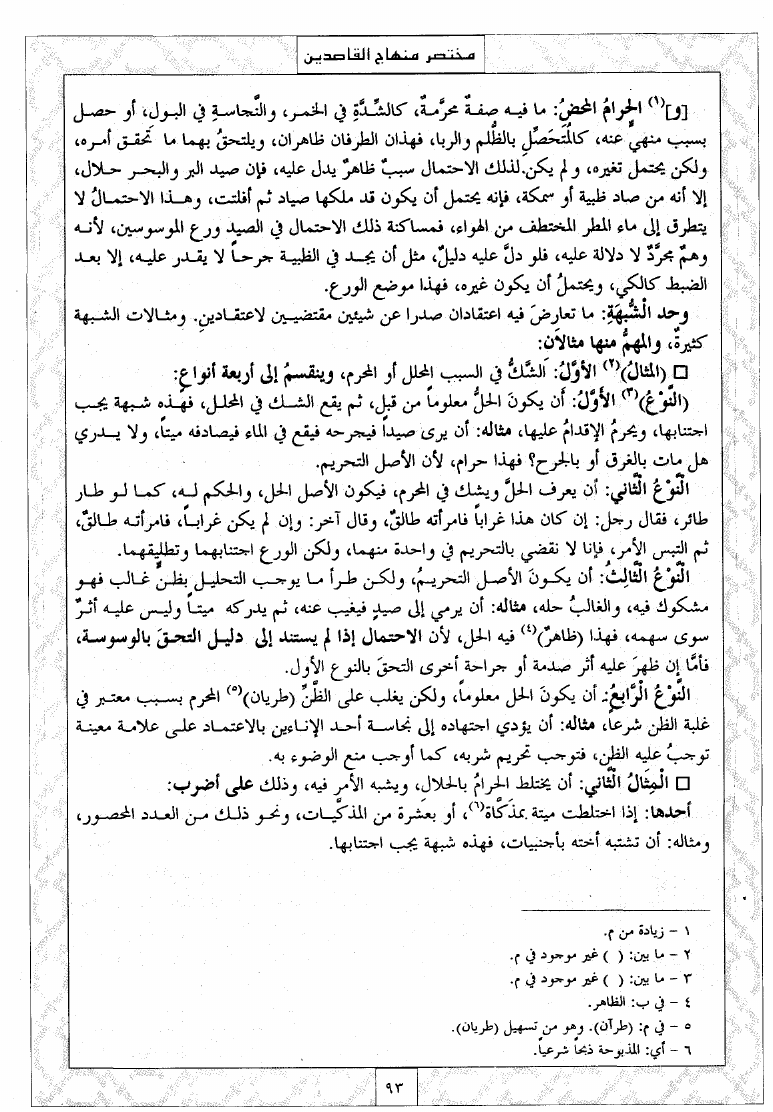 مختصر منهاج القاصدين
[و]⁽¹⁾ الحرامُ المحضُ: ما فيه صفةٌ محرَّمةٌ، كالشِّدَّةِ في الخمر، والنَّجاسةِ في البول، أو حصل
بسبب منهيٍّ عنه، كالمُتَحَصِّلِ بالظُّلم والربا، فهذان الطرفان ظاهران، ويلتحقُ بهما ما تحقق أمره،
ولكن يحتمل تغيره، ولم يكن لذلك الاحتمال سببٌ ظاهرٌ يدل عليه، فإن صيد البر والبحر حلال،
إلا أنه من صاد ظبية أو سمكة، فإنه يحتمل أن يكون قد ملكها صياد ثم أفلتت، وهذا الاحتمالُ لا
يتطرق إلى ماء المطر المختطف من الهواء، فمساكنة ذلك الاحتمال في الصيد ورع الموسوسين، لأنه
وهمٌ مجرَّدٌ لا دلالة عليه، فلو دلَّ عليه دليلٌ، مثل أن يجد في الظبية جرحاً لا يقدر عليه، إلا بعد
الضبط كالكي، ويحتملُ أن يكون غيره، فهذا موضع الورع.
وحد الْشُّبهَةِ: ما تعارضَ فيه اعتقادان صدرا عن شيئين مقتضيين لاعتقادينِ. ومثالات الشبهة
كثيرةٌ، والمهمُّ منها مثالاَن:
□ (المثالُ)⁽²⁾ الأوَّلُ: اَلشَّكُّ في السبب المحلل أو المحرم، وينقسمُ إلى أربعة أنواعٍ:
(النَّوْعُ)⁽³⁾ الأَوَّلُ: أن يكونَ الحلُّ معلوماً من قبل، ثم يقع الشك في المحلل، فهذه شبهة يجب
اجتنابها، ويحرمُ الإقدامُ عليها، مثاله: أن يرى صيداً فيجرحه فيقع في الماء فيصادفه ميتاً، ولا يدري
هل مات بالغرق أو بالجرح؟ فهذا حرام، لأن الأصل التحريم.
الْنَّوْعُ الْثَّاني: أن يعرف الحلَّ ويشك في المحرم، فيكون الأصل الحل، والحكم له، كما لو طار
طائر، فقال رجل: إن كان هذا غراباً فامرأته طالقٌ، وقال آخر: وإن لم يكن غراباً، فامرأته طالقٌ،
ثم التبس الأمر، فإنا لا نقضي بالتحريم في واحدة منهما، ولكن الورع اجتنابهما وتطليقهما.
الْنَّوْعُ الْثَّالِثُ: أن يكونَ الأصل التحريمُ، ولكن طرأ ما يوجب التحليل بظنٍّ غالب فهو
مشكوك فيه، والغالبُ حله، مثاله: أن يرمي إلى صيدٍ فيغيب عنه، ثم يدركه ميتاً وليس عليه أثرٌ
سوى سهمه، فهذا (ظاهرٌ)⁽⁴⁾ فيه الحل، لأن الاحتمال إذا لم يستند إلى دليل التحقَ بالوسوسة،
فأمَّا إن ظهرَ عليه أثر صدمة أو جراحة أخرى التحقَ بالنوع الأول.
النَّوْعُ الْرَّابعُ: أن يكونَ الحل معلوماً، ولكن يغلب على الظَّنِّ (طريان)⁽⁵⁾ المحرم بسبب معتبر في
غلبة الظن شرعاً، مثاله: أن يؤدي اجتهاده إلى نجاسة أحد الإناءين بالاعتماد على علامة معينة
توجبُ عليه الظن، فتوجب تحريم شربه، كما أوجب منع الوضوء به.
□ الْمِثَالُ الْثَّاني: أن يختلط الحرامُ بالحلال، ويشبه الأمر فيه، وذلك على أضرب:
أحدها: إذا اختلطت ميتة بمذكَّاة⁽⁶⁾، أو بعشرة من المذكَّيات، ونحو ذلك من العدد المحصور،
ومثاله: أن تشتبه أخته بأجنبيات، فهذه شبهة يجب اجتنابها.
١ - زيادة من م.
٢ - ما بين: ( ) غير موجود في م.
٣ - ما بين: ( ) غير موجود في م.
٤ - في ب: الظاهر.
٥ - في م: (طرآن). وهو من تسهيل (طريان).
٦ - أي: المذبوحة ذبحاً شرعياً.
٩٣